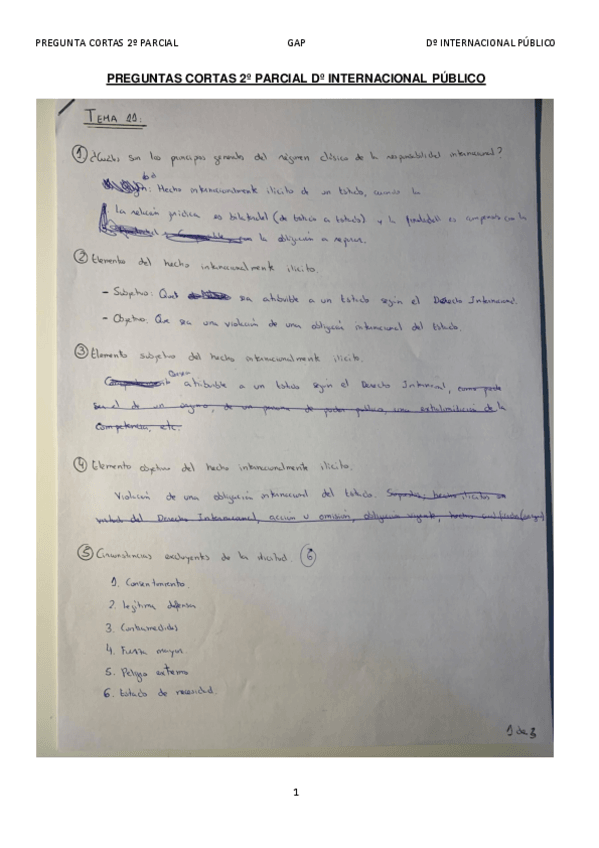 PREGUNTA CORTAS 2º PARCIAL GAP Dº INTERNACIONAL PÚBLICO
PREGUNTAS CORTAS 2º PARCIAL Dº INTERNACIONAL PÚBLICO
TEMA 11:
① ¿Cuáles son los principios generales del régimen clásico de la responsabilidad internacional?
Hecho internacionalmente ilícito de un Estado, cuando la
La relación jurídica es bilateral (de Estado a Estado) y la
la obligación a reparar.
② Elemento del hecho internacionalmente ilícito.
- Subjetivo: Que sea atribuible a un Estado según el Derecho Internacional.
- Objetivo. Que sea una violación de una obligación internacional del Estado.
③ Elemento subjetivo del hecho internacionalmente ilícito.
atribuible a un Estado según el Derecho Internacional, como puede
ser el de un órgano, de una persona de poder público, una extralimitación de la
Competencia, etc.
④ Elemento objetivo del hecho internacionalmente ilícito.
Violación de una obligación internacional del Estado.
del Derecho Internacional, acción u omisión, obligación vigente, hecho
⑤ Circunstancias excluyentes de la ilicitud. ⑥
1. Consentimiento.
2. Legítima defensa
3. Contramedidas
4. Fuerza mayor.
5. Peligro extremo
6. Estado de necesidad.
1 de 3
1